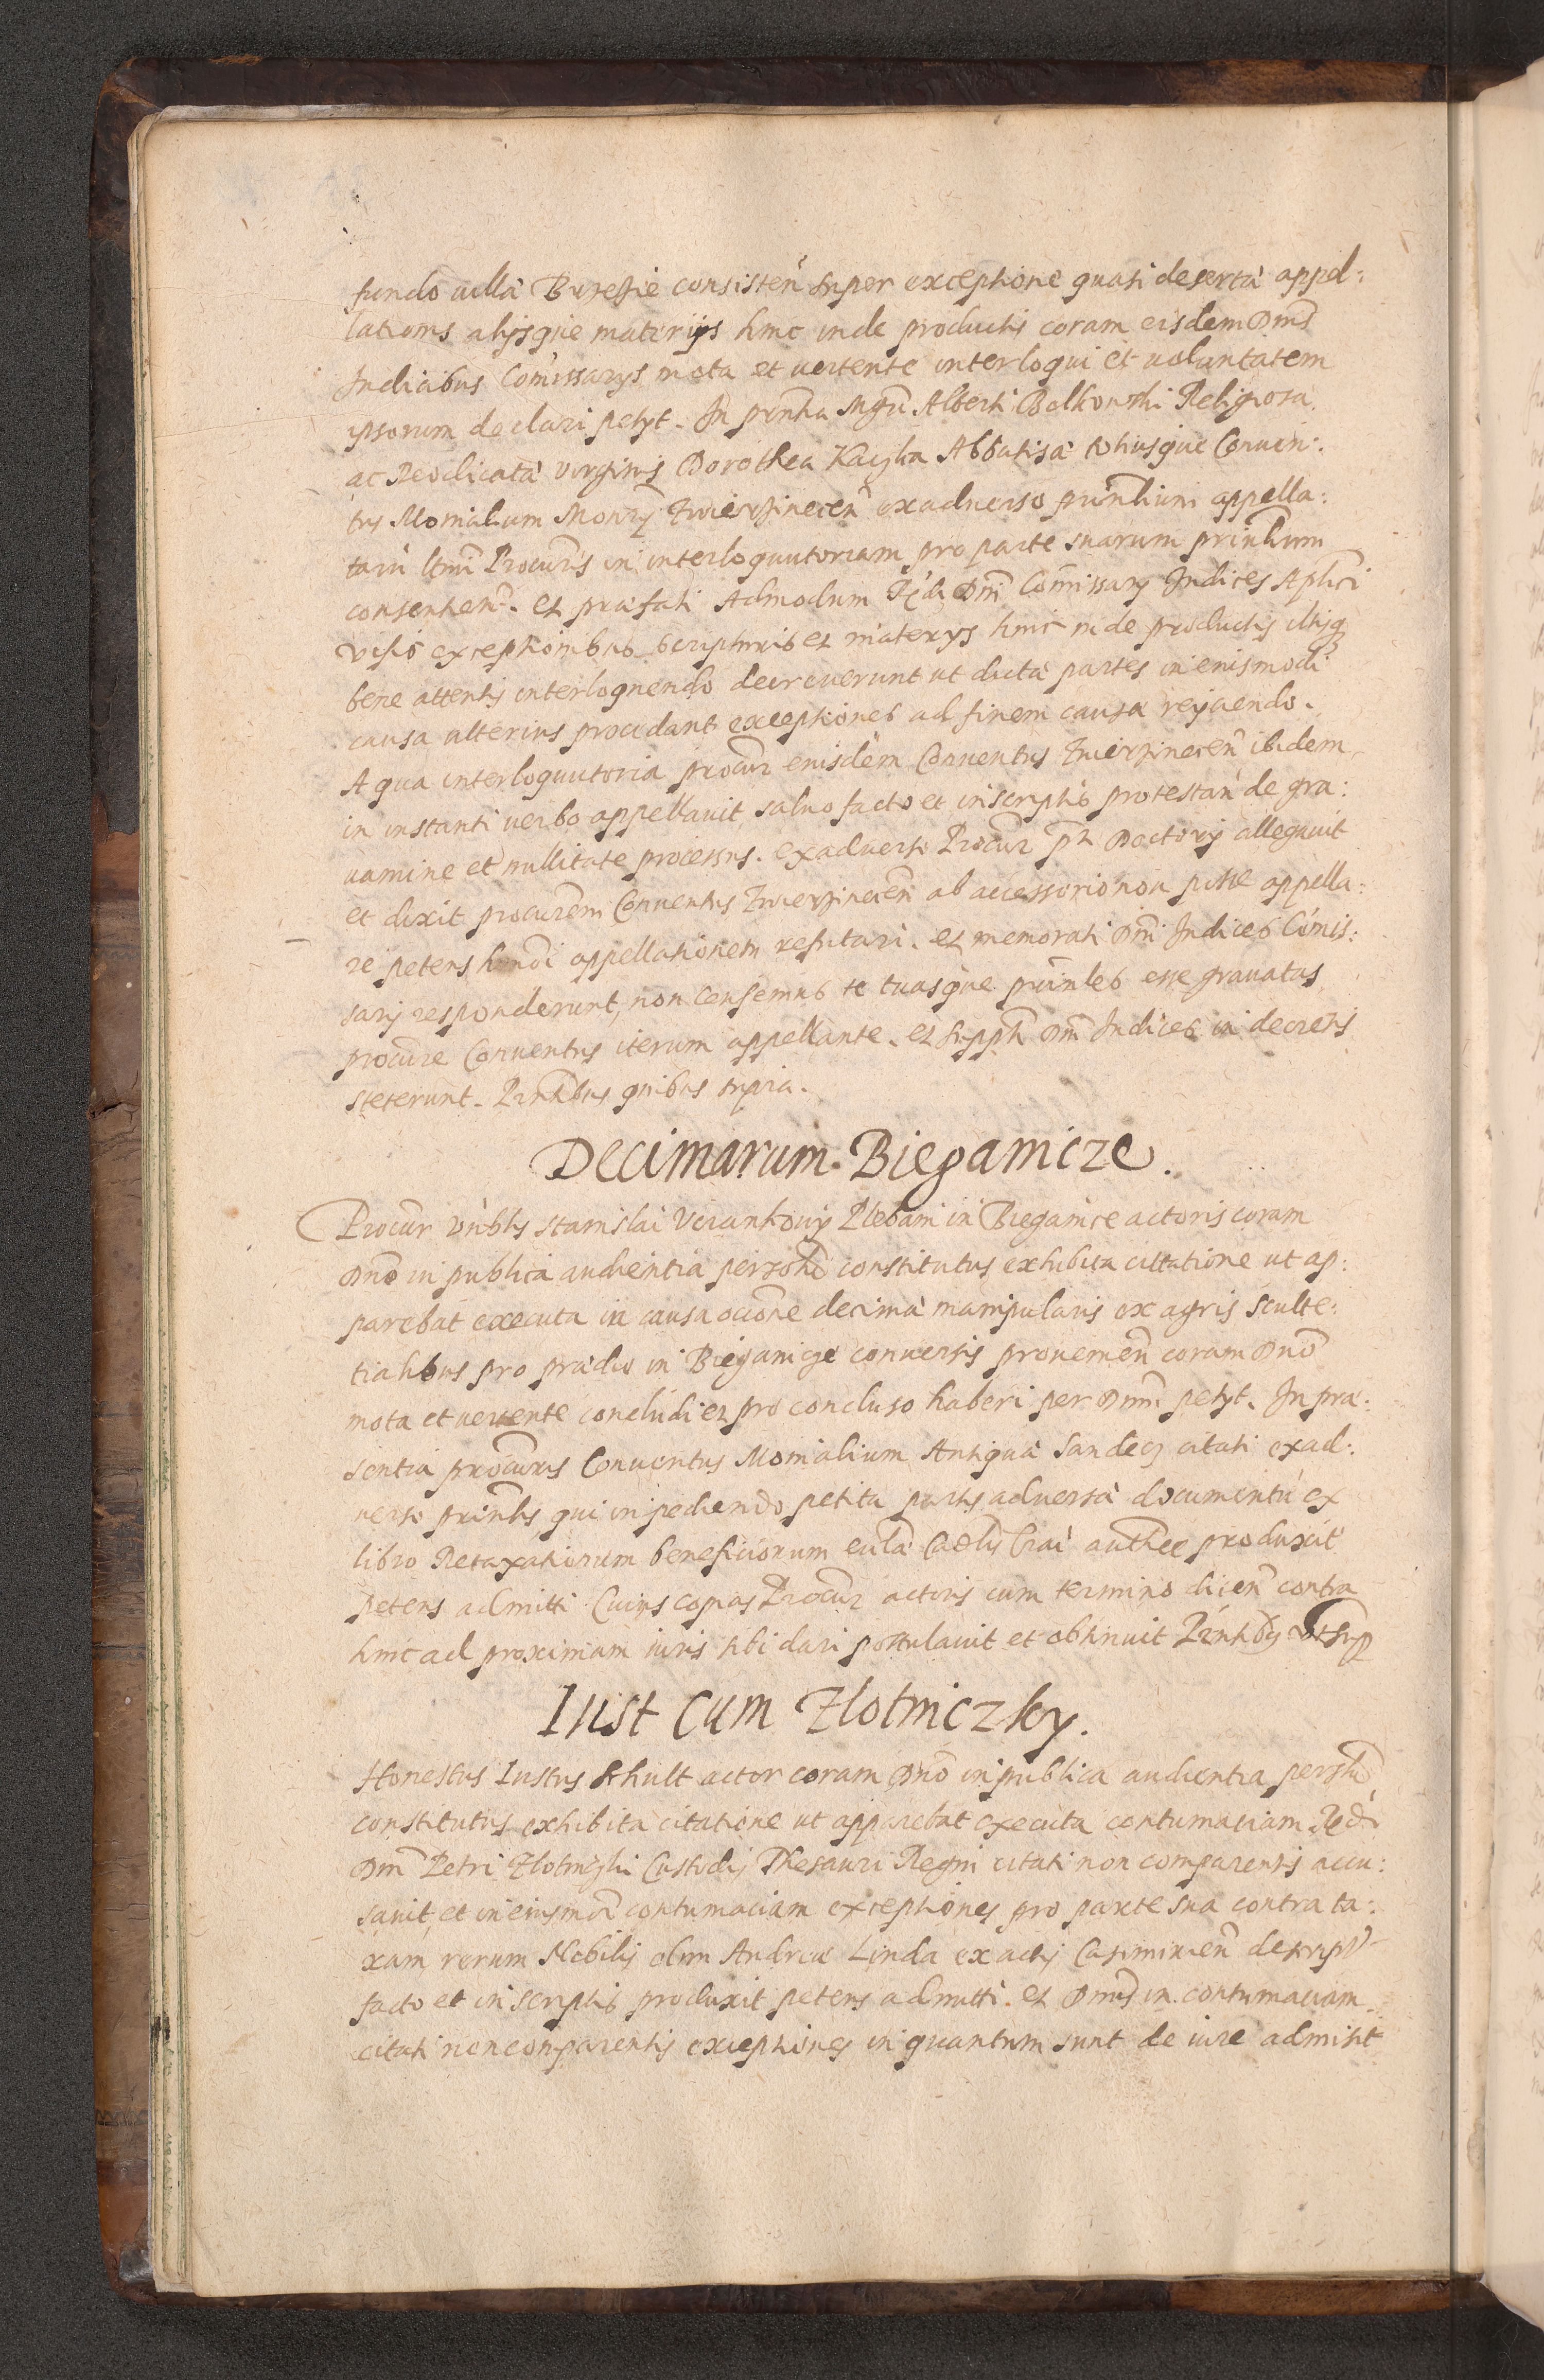 fundo villa Brzessie consisten̄ super exceptione quasi deserta appel:
lationis alijsque materijs hinc inde productis coram eisdem Dnis̄
Iudicibus Comissarijs mota et vertente interloqui et voluntatem
ipsorum declari petyt. In pñtia Mgri Alberti Religiosa
ac Deo dicata virginis Dorothea Abbatissa totiusque Conven:
tus Monialium Monrÿ Zwierzinecen̄ ex adverso prin̄lium appella:
tarū ltmi Procuris̄ in interloquutoriam pro parte suarum prin̄lium
consentien̄. Et præfati Admodum Rd̄i Dnī Comissarij Iudices Aplici
visis exceptionibus scripturis et materijs hinc inde productis illisq̨
bene attentis interloquendo decreverunt ut dicta partes in eiusmodi
causa ulterius procedant exceptiones ad finem causa reijciendo.
A qua interloquutoria procur̄ eiusdem Conventus Zwierzinecen̄ ibidem
in instanti verbo appellavit, salvo facto et in scriptis protestan̄ de gra:
vamine et nullitate processus. ex adverso Procur̄ Doctoris allegavit
et dixit procurem̄ Conventus Zwierzinecen̄ ab accessorio non posse appella:
re petens appellationem refutari. Et memorati Dnī Iudices Comis:
sarij responderunt, non censemus te tuasque prin̄les esse gravatas
procure̅ Conventus iterum appellante. Et Dnī Iudices in decretis
steterunt. Pn̄tibus quibus supra.
Decimarum. Biegamicze.
Procur̄ Vn̄blis Stanislai Plebani in Biegamice actoris coram
Dnō in publica audientia personlr̄ constitutus exhibita cittatione ut ap:
parebat executa in causa decima manipularis ex agris sculte:
tialibus pro prædio in Bieganicze conversis provenien̄ coram Dnō
mota et vertente concludi et pro concluso haberi per Dnm̄ petyt. In præ:
sentia procuris̄ Conventus Monialium Antiqua Sandecz citati ex ad:
verso prin̄lis qui impediendo petita partis adversa documentū ex
libro Retaxationum beneficiorum eccla Cath̄lis Cra͡ authēē produxit
petens admitti. Cuius copias Procur̄ actoris cum termino dicen̄ contra
hinc ad proximam iuris sibi dari postulavit et obtinuit Pn̄tibq̨ ut sup̱
Iust cum Zlotniczky.
Honestus Iustus Schult actor coram Dnō in publica audientia personlr̄
constitutus exhibita citatione ut apparebat executa contumaciam Rd̄i
Dnī Petri Zlotniczki Custodis Thesauri Regni citati non comparentis accu:
savit et in eiusmodi contumaciam exceptiones pro parte sua contra ta:
xam rerum Nobilis olim Andrea Linda ex actis Casimirien̄ descript̄
facto et in scriptis produxit petens admitti. Et Dnus̄ in contumaciam
citati non comparentis exceptiones in quantum sunt de iure admisit